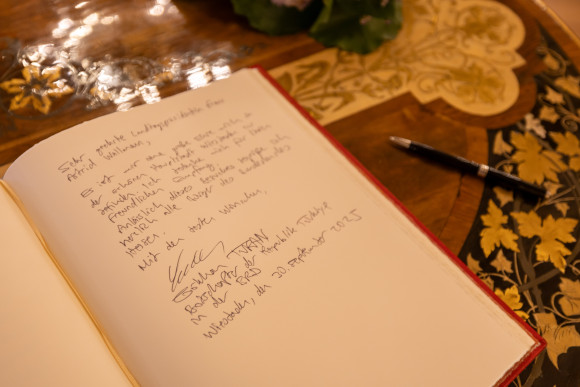 Sehr geehrte Landtagspräsidentin Frau
Astrid Wallmann,
Es ist mir eine große Ehre mich in
der schönen Hauptstadt Wiesbaden zu
Ich viele für Ihren
freundlichen Empfang.
Anlässlich dieses Besuches
ich alle Bürger des Bundeslandes
Hessen.
Mit den besten Wünschen,
Gökhan TURAN
Botschafter der Republik Türkiye
in der BRD
Wiesbaden, den 20. September 2025